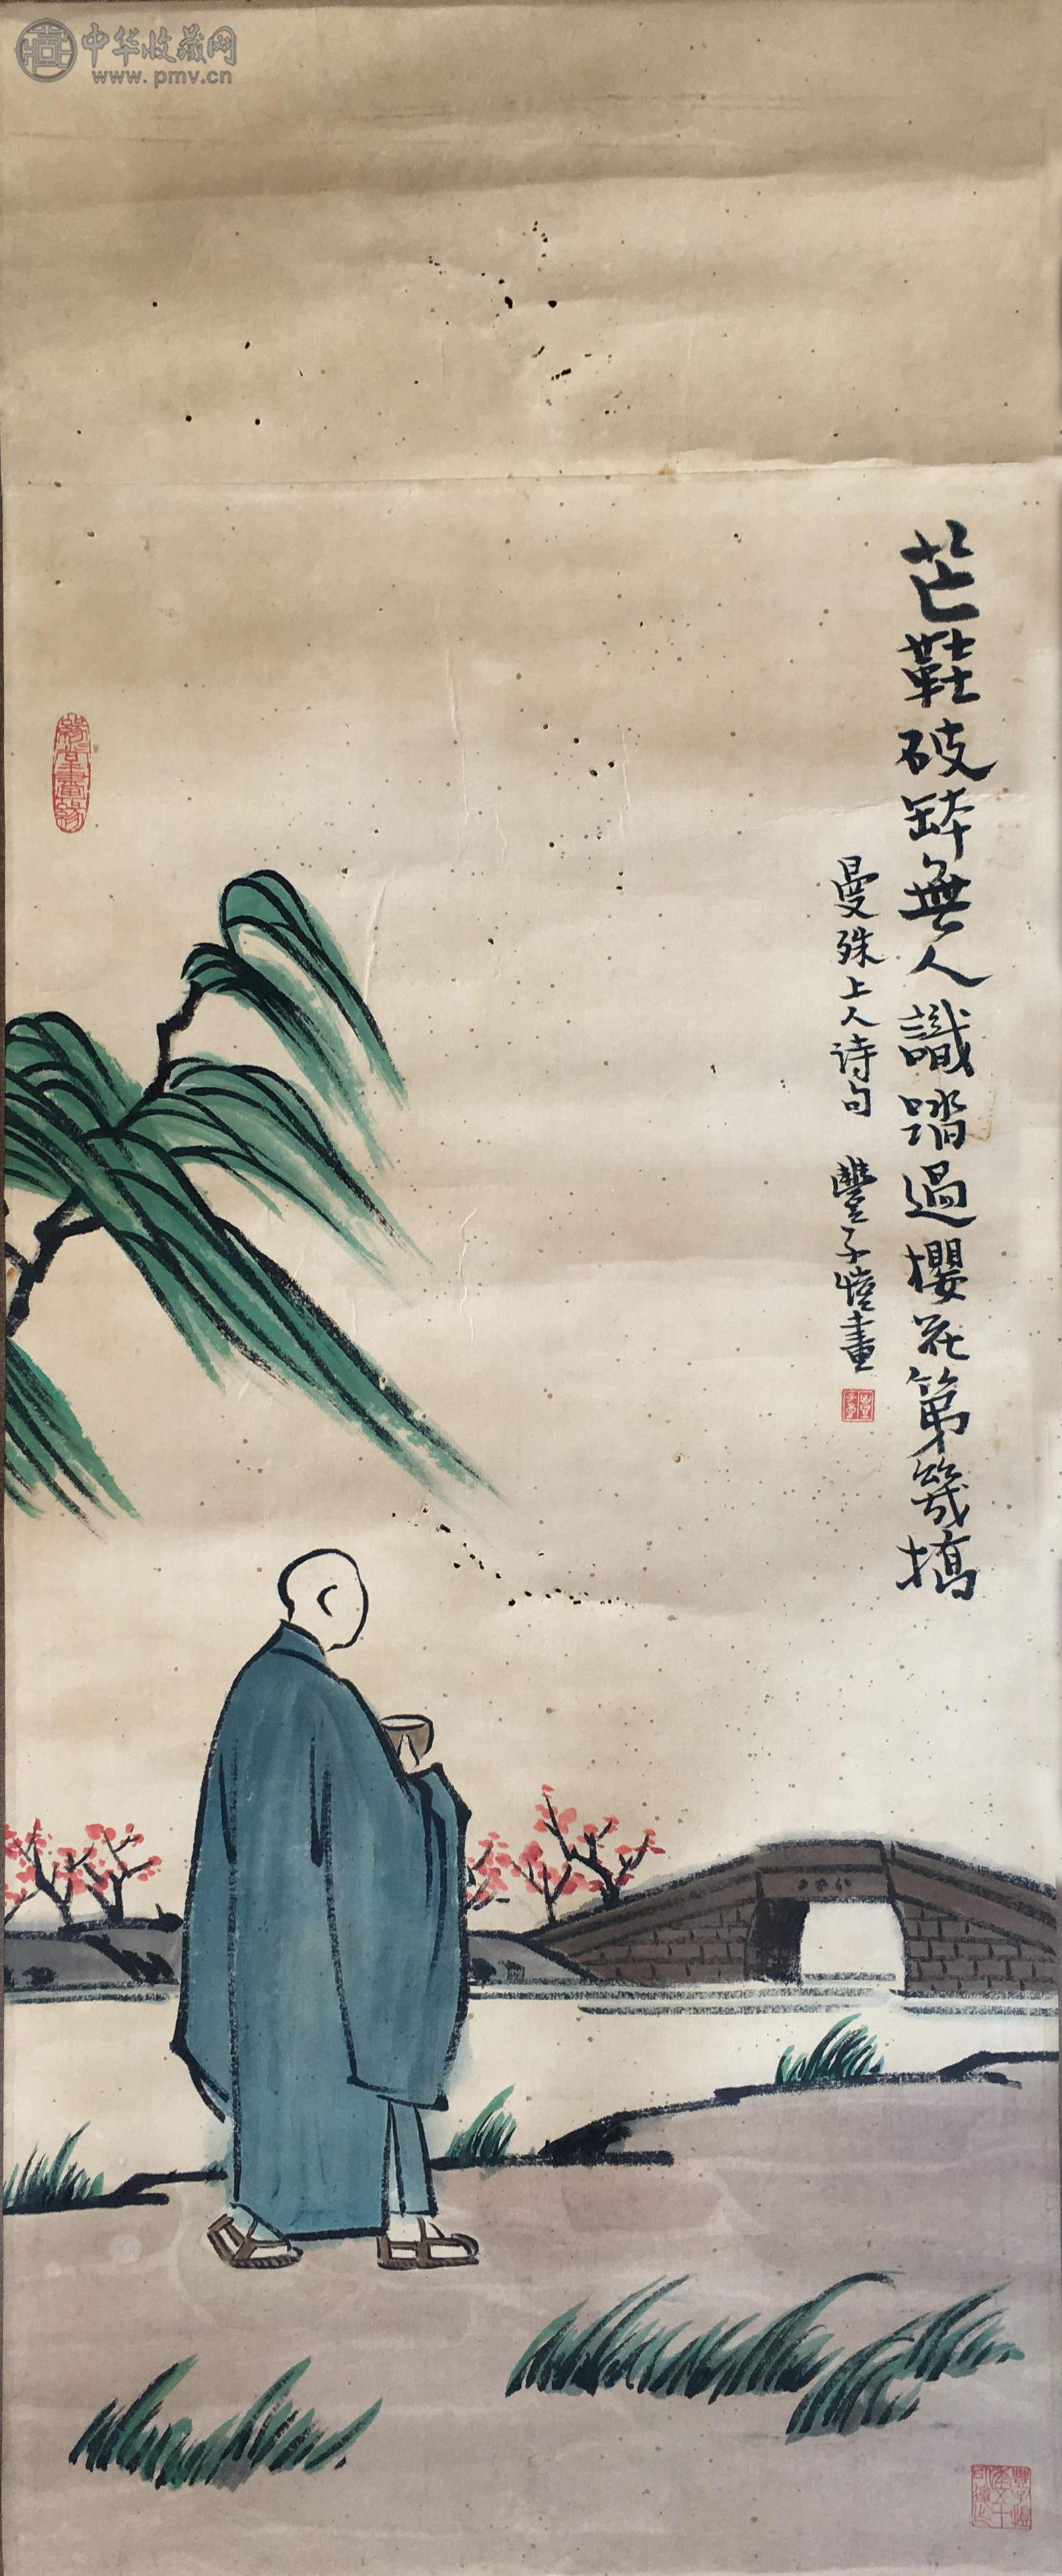 中华收藏网
www.pmv.cn
芒鞋破鉢無人識踏過櫻花第幾橋
曼殊上人诗句 豐子愷畫
緣緣堂畫箋